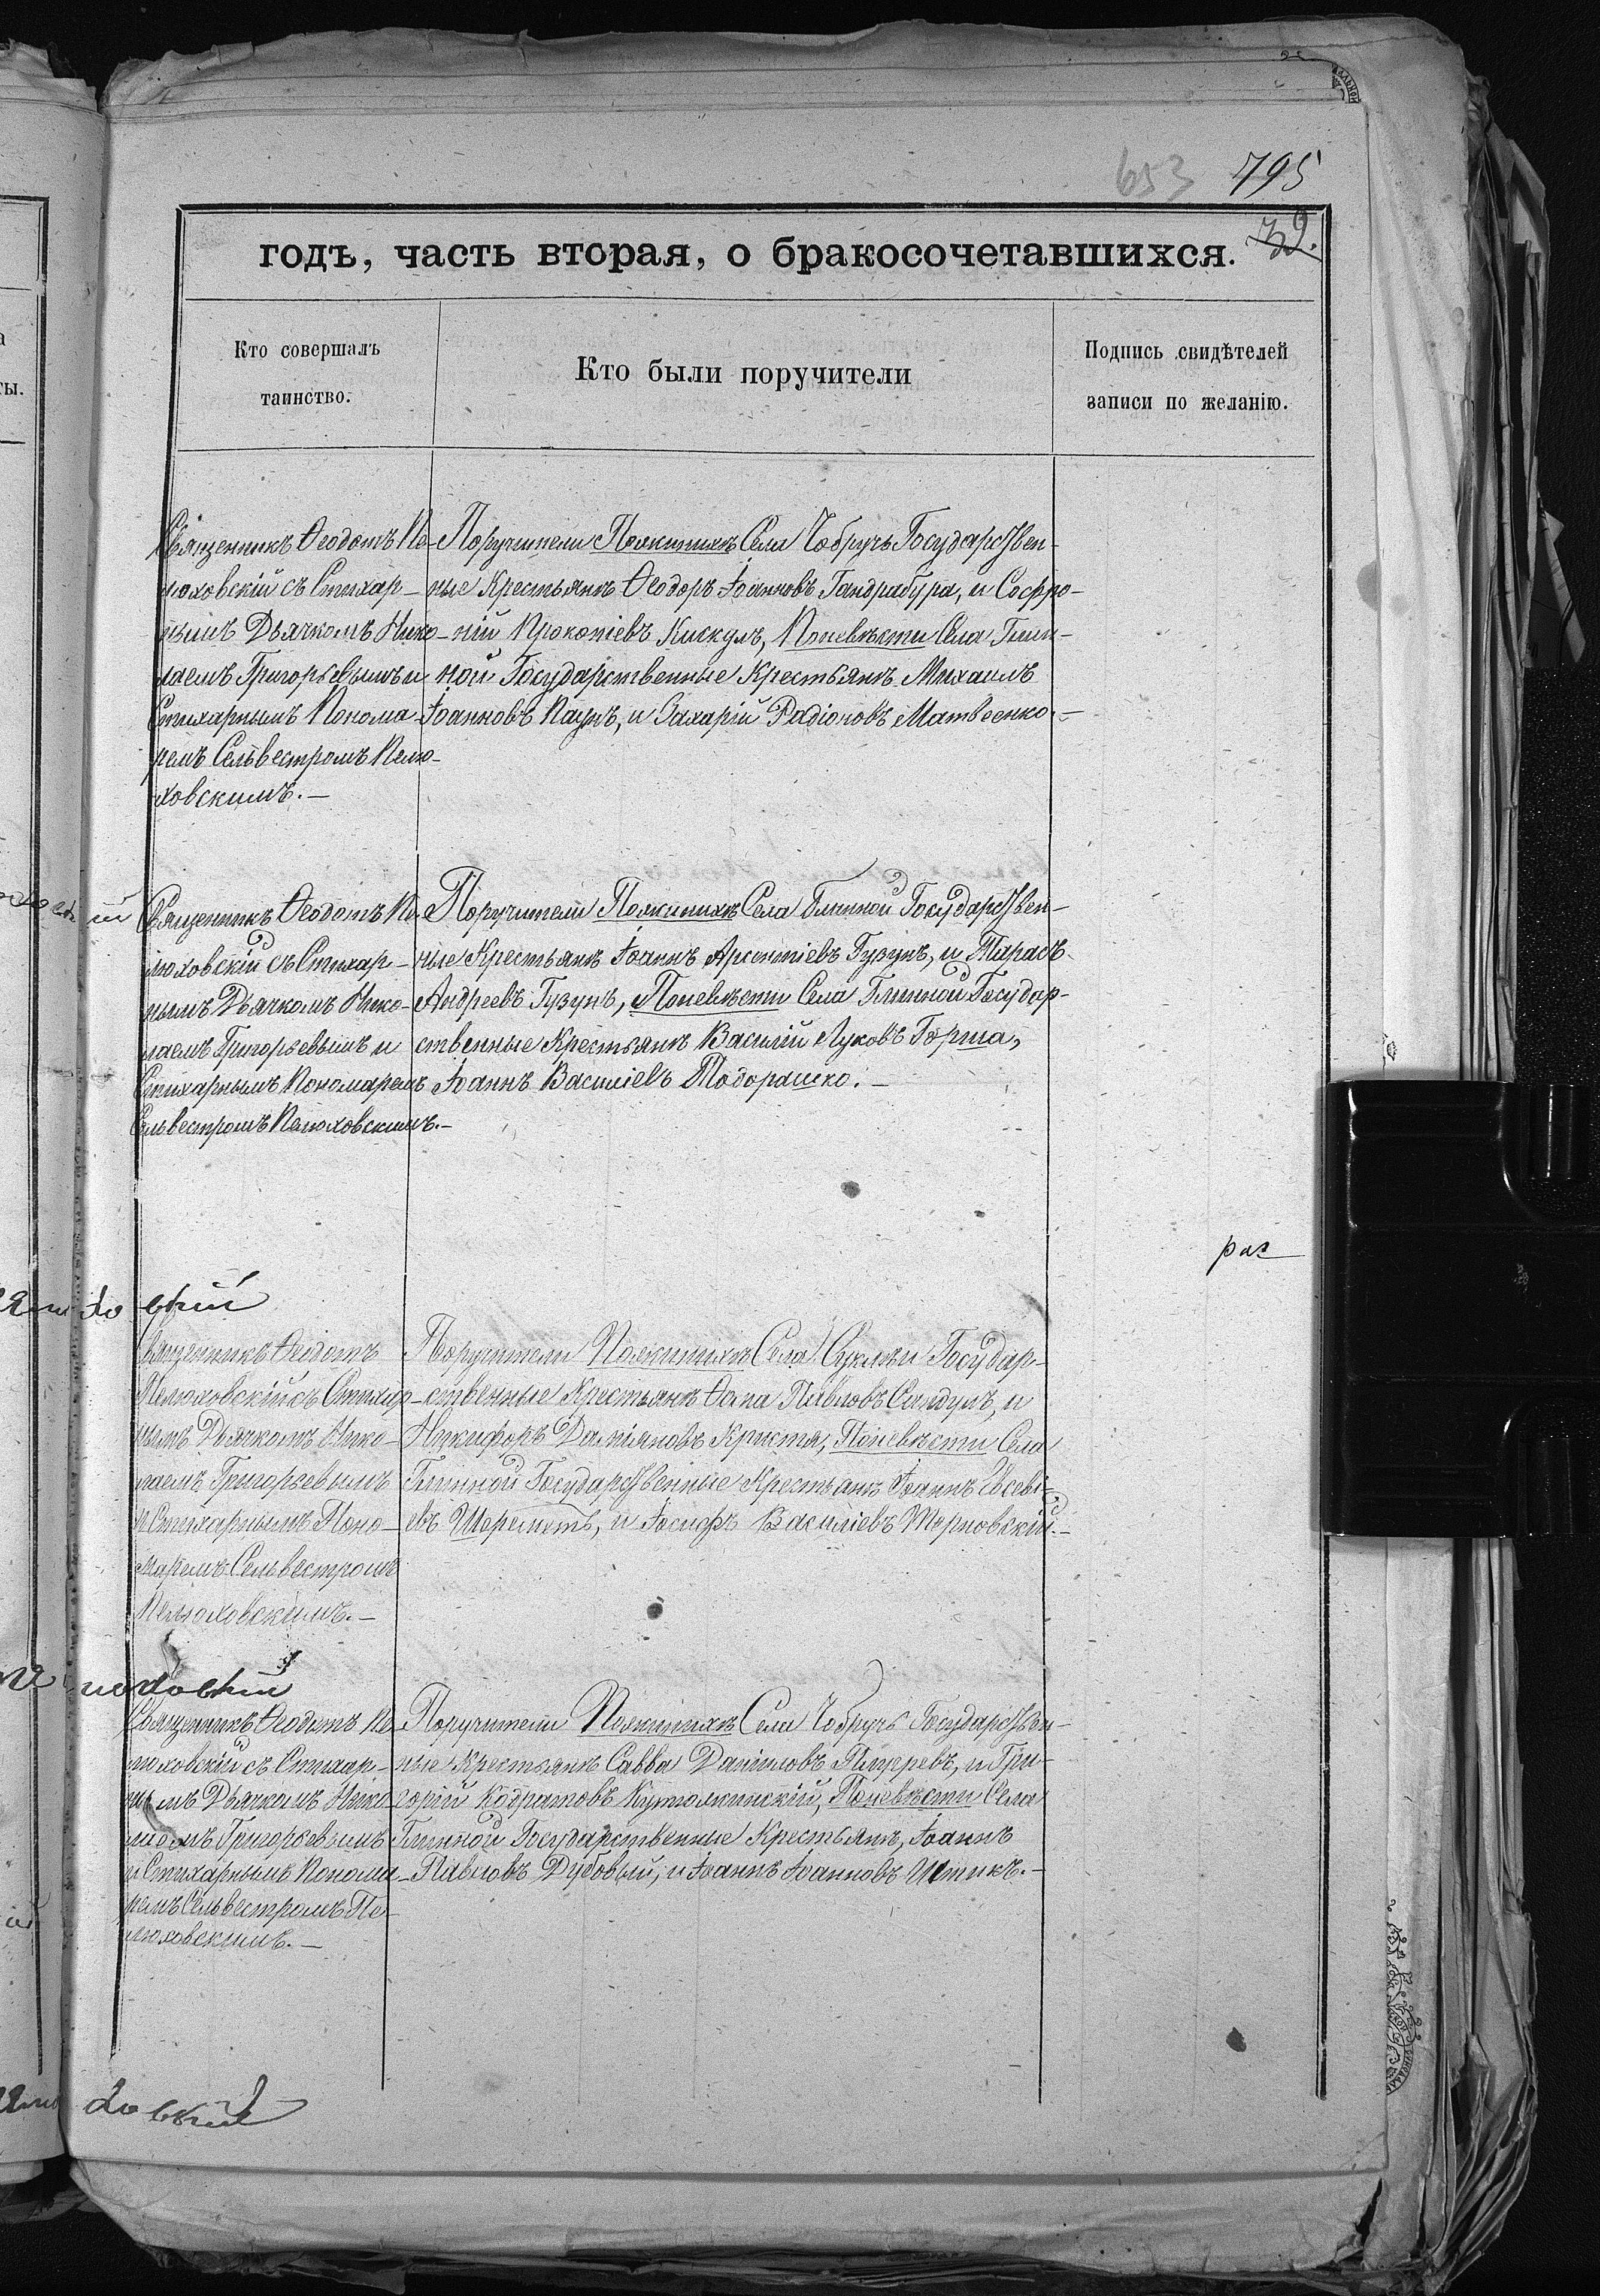 653 795
39.
годъ, часть вторая, о бракосочетавшихся.
Кто совершалъ
таинство.
Кто были поручители
Подпись свидѣтелей
записи по желанію.
Священникъ Ѳеодотъ Пе-
люховскій съ Стихар-
нымъ Дьячкомъ Нико-
лаемъ Григорьевымъ и
Стихарнымъ Понома-
ремъ Сельвестромъ Пелю-
ховскимъ.—
Поручители По женихѣ Села Чобручъ Государствен-
ные Крестьянѣ Ѳеодоръ Іоанновъ Гандрабура, и Софро-
ній Прокопіевъ Кискулъ, По невѣсти Села Глин-
ной Государственные Крестьянѣ Михаилъ
Іоанновъ Паунъ, и Захарій Радіоновъ Матвеенко.—
Священникъ Ѳеодотъ Пе-
люховскій съ Стихар-
нымъ Дьячкомъ Нико-
лаемъ Григорьевымъ и
Стихарнымъ Пономаремъ
Сельвестромъ Пелюховскимъ.—
Поручители По женихѣ Села Глинной Государствен-
ные Крестьянѣ Іоаннъ Арсентіевъ Гузунъ, и Тарасъ
Андреевъ Гузунъ, По невѣсти Села Глинной Государ-
ственные Крестьянѣ Василій Луковъ Горша,
Іоаннъ Василіевъ Тодорашко.—
раз
ховскій
Священникъ Ѳеодотъ
Пелюховскій съ Стихар-
нымъ Дьячкомъ Нико-
лаемъ Григорьевымъ
и Стихарнымъ Поно-
маремъ Сельвестромъ
Пелюховскимъ.—
Поручители По женихѣ Села Суклѣи Государ-
ственные Крестьянѣ Ѳома Павловъ Сандулъ, и
Никифоръ Даміановъ Кристя, По невѣсти Села
Глинной Государственные Крестьянѣ Іоаннъ Евсеві-
евъ Шереметъ, и Іосифъ Василіевъ Терновскій.—
люховскій
Священникъ Ѳеодотъ Пе-
люховскій съ Стихар-
нымъ Дьячкомъ Нико-
лаемъ Григорьевымъ
и Стихарнымъ Понома-
ремъ Сельвестромъ Пе-
люховскимъ.—
Поручители По женихѣ Села Чобручъ Государствен-
ные Крестьянѣ Савва Даниловъ, и Гри-
горій Кодратовъ, По невѣсти Села
Глинной Государственные Крестьянѣ, Іоаннъ
Павловъ Дубовый, и Іоаннъ Іоанновъ Истикъ.—
ховскій